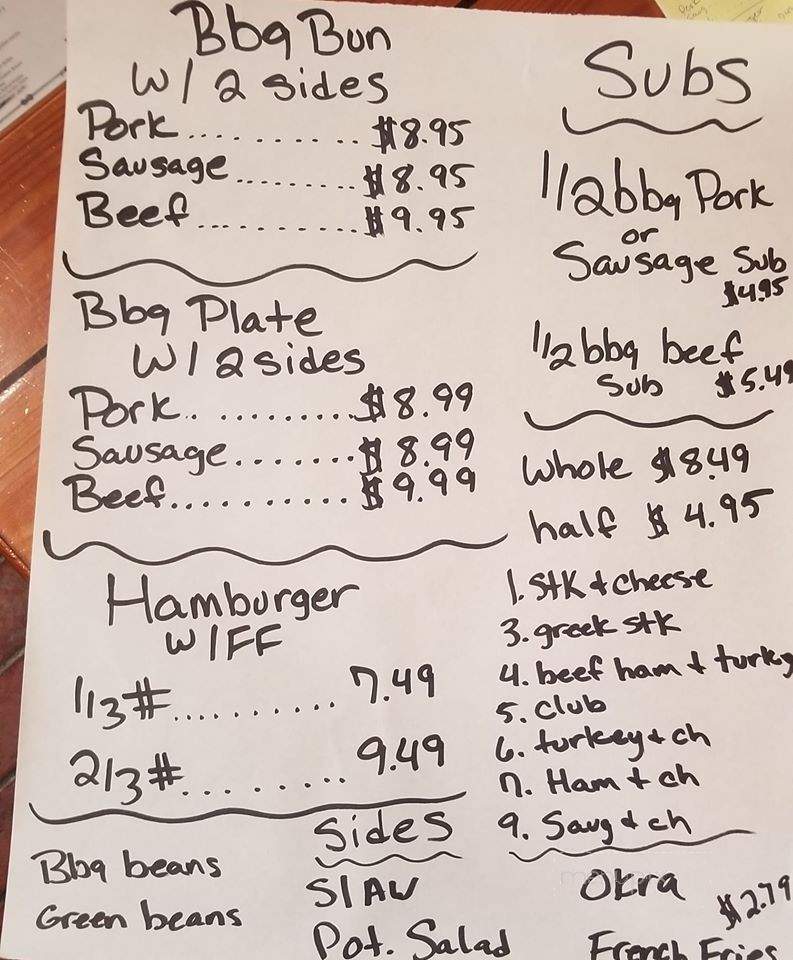 Bbq Bun
W/ 2 sides
Pork.............$8.95
Sausage............$8.95
Beef..............$9.95
Bbq Plate
W/ 2 sides
Pork.. .........$8.99
Sausage.......$8.99
Beef...........$9.99
Hamburger
W/FF
1/3#..........7.49
2/3#........9.49
Sides
Bbq beans
Green beans
Slaw
Pot. Salad
Subs
1/2 bbq Pork
or
Sausage Sub
$4.95
1/2 bbq beef
Sub $5.49
whole $8.49
half $4.95
1. stk + cheese
3. greek stk
4. beef ham + turky
5. club
6. turkey + ch
7. Ham + ch
9. Saug + ch
Okra
$2.79
French Fries